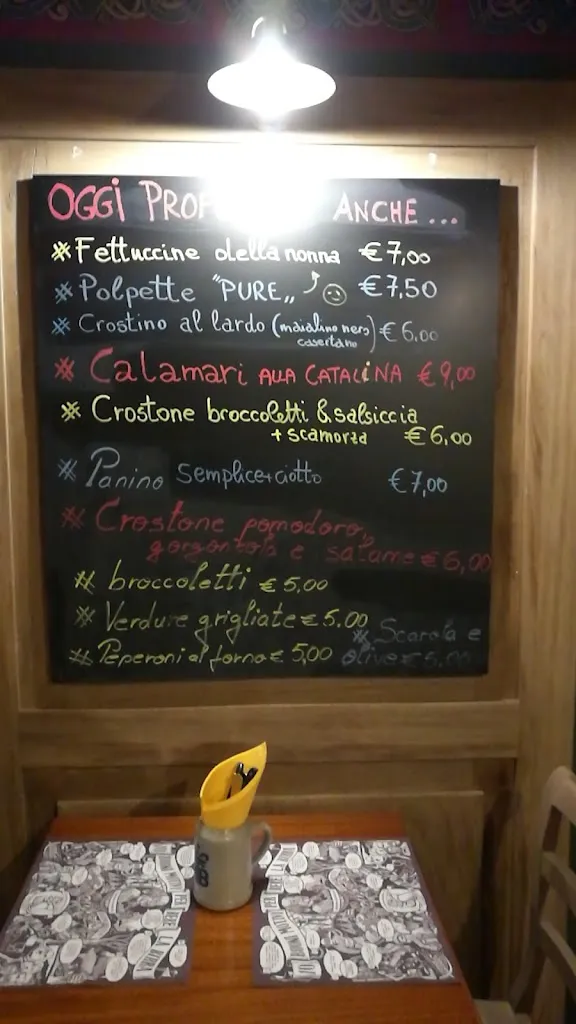 OGGI PROP ANCHE ...
# Fettuccine della nonna €7,00
# Polpette "PURE" €7,50
# Crostino al lardo (maialino nero casertano) €6,00
# Calamari ALLA CATALINA €9,00
# Crostone broccoletti & salsiccia
+ scamorza €6,00
# Panino semplice+ciotto €7,00
# Crostone pomodoro,
gorgonzola e salame €6,00
# broccoletti €5.00
# Verdure grigliate €5.00
# Peperoni al forno € 5,00
# Scarola e
olive €5,00